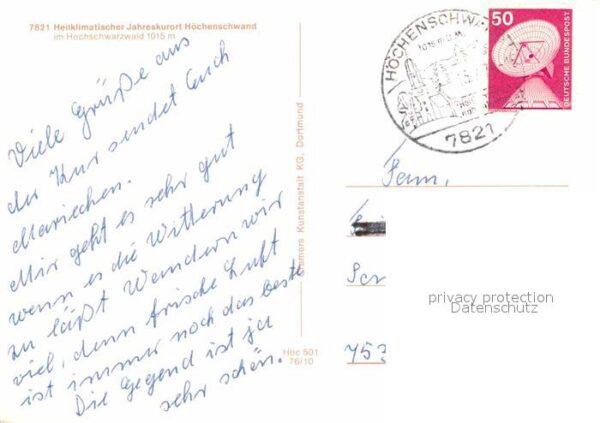 7821 Heilklimatischer Jahreskurort Höchenschwand
im Hochschwarzwald 1015 m
Viele Grüße aus
der Kur sendet Euch
Mariechen.
Mir geht es sehr gut
wenn es die Witterung
zu läßt Wandern wir
viel, denn frische Luft
ist immer noch das beste
Die Gegend ist ja
sehr schön.
Cramers Kunstanstalt KG, Dortmund
Höc 501
76/10
HÖCHENSCHWA
1015 m ü. M.
7821
50
DEUTSCHE BUNDESPOST
Fam.
753
privacy protection
Datenschutz